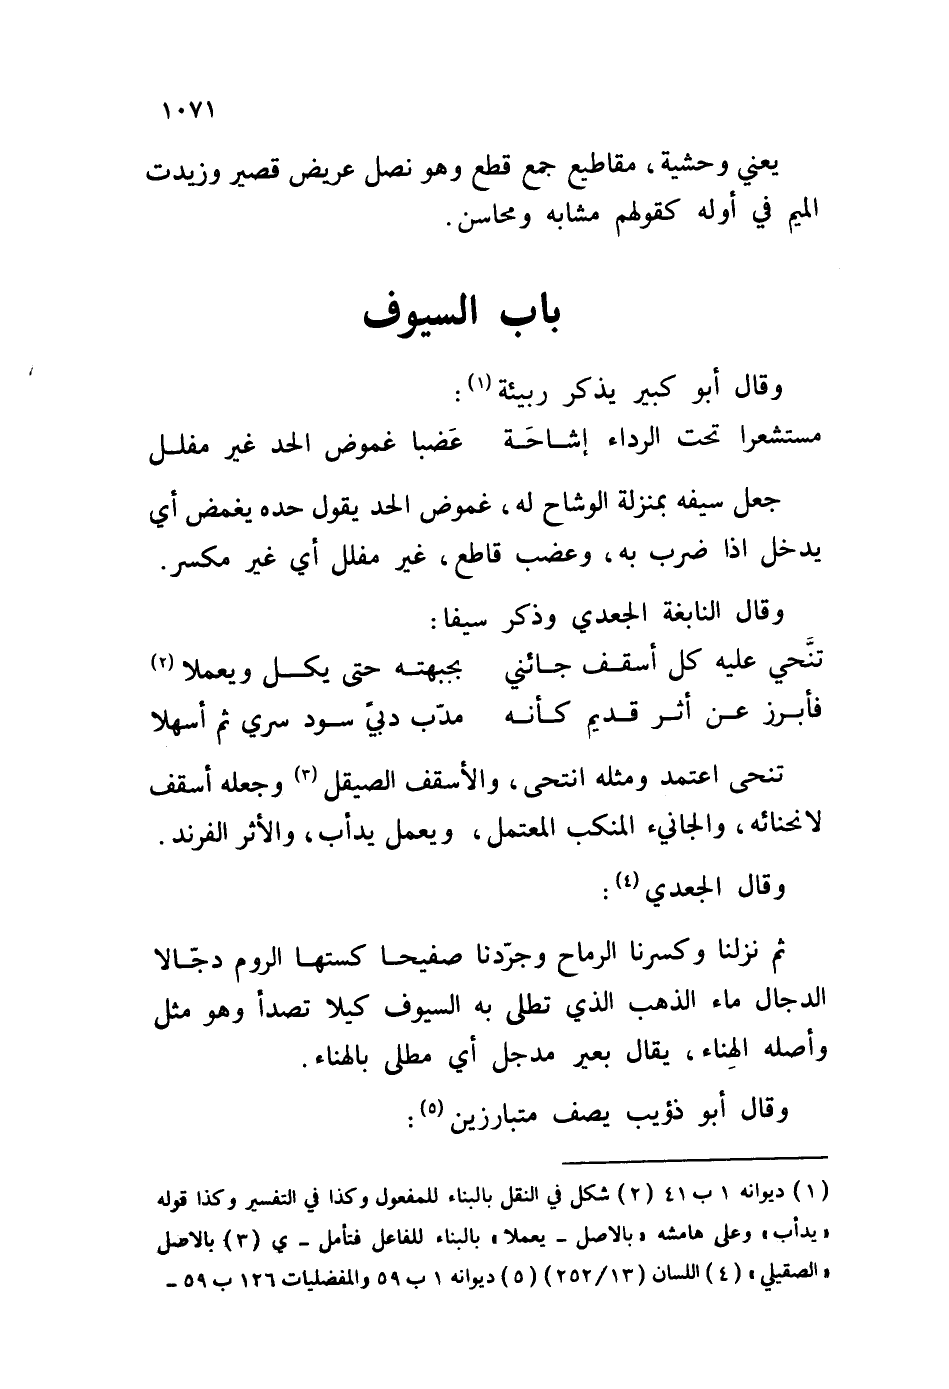 ١٠٧١
يعني وحشية، مقاطيع جمع قطع وهو نصل عريض قصير وزيدت
الميم في أوله كقولهم مشابه ومحاسن.
باب السيوف
وقال أبو كبير يذكر ربيئة (١):
مستشعرا تحت الرداء إشـاحَـة عَضبا غموض الحد غير مفلـل
جعل سيفه بمنزلة الوشاح له، غموض الحد يقول حده يغمض أي
يدخل اذا ضرب به، وعضب قاطع، غير مفلل أي غير مكسر.
وقال النابغة الجعدي وذكر سيفا:
تنَّحي عليه كل أسقـف جـانئي بجبهتـه حتى يكـــل ويعملا (٢)
فأبـرز عـن أثـر قـديم كـأنـه مدّب دبيّ سـود سري ثم أسهلا
تنحى اعتمد ومثله انتحى، والأسقف الصيقل (٣) وجعله أسقف
لانحنائه، والجانيء المنكب المعتمل، ويعمل يدأب، والأثر الفرند.
وقال الجعدي (٤):
ثم نزلنا وكسرنا الرماح وجرّدنا صفيحـا كستهـا الروم دجّـالا
الدجال ماء الذهب الذي تطلى به السيوف كيلا تصدأ وهو مثل
وأصله الهِناء، يقال بعير مدجل أي مطلى بالهناء.
وقال أبو ذؤيب يصف متبارزين (٥):
(١) ديوانه ١ ب ٤١ (٢) شكل في النقل بالبناء للمفعول وكذا في التفسير وكذا قوله
«يدأب» وعلى هامشه «بالاصل ـ يعملا» بالبناء للفاعل فتأمل ـ ي (٣) بالاصل
«الصقيلي» (٤) اللسان (١٣/ ٢٥٢) (٥) ديوانه ١ ب ٥٩ والمفضليات ١٢٦ ب ٥٩ ـ